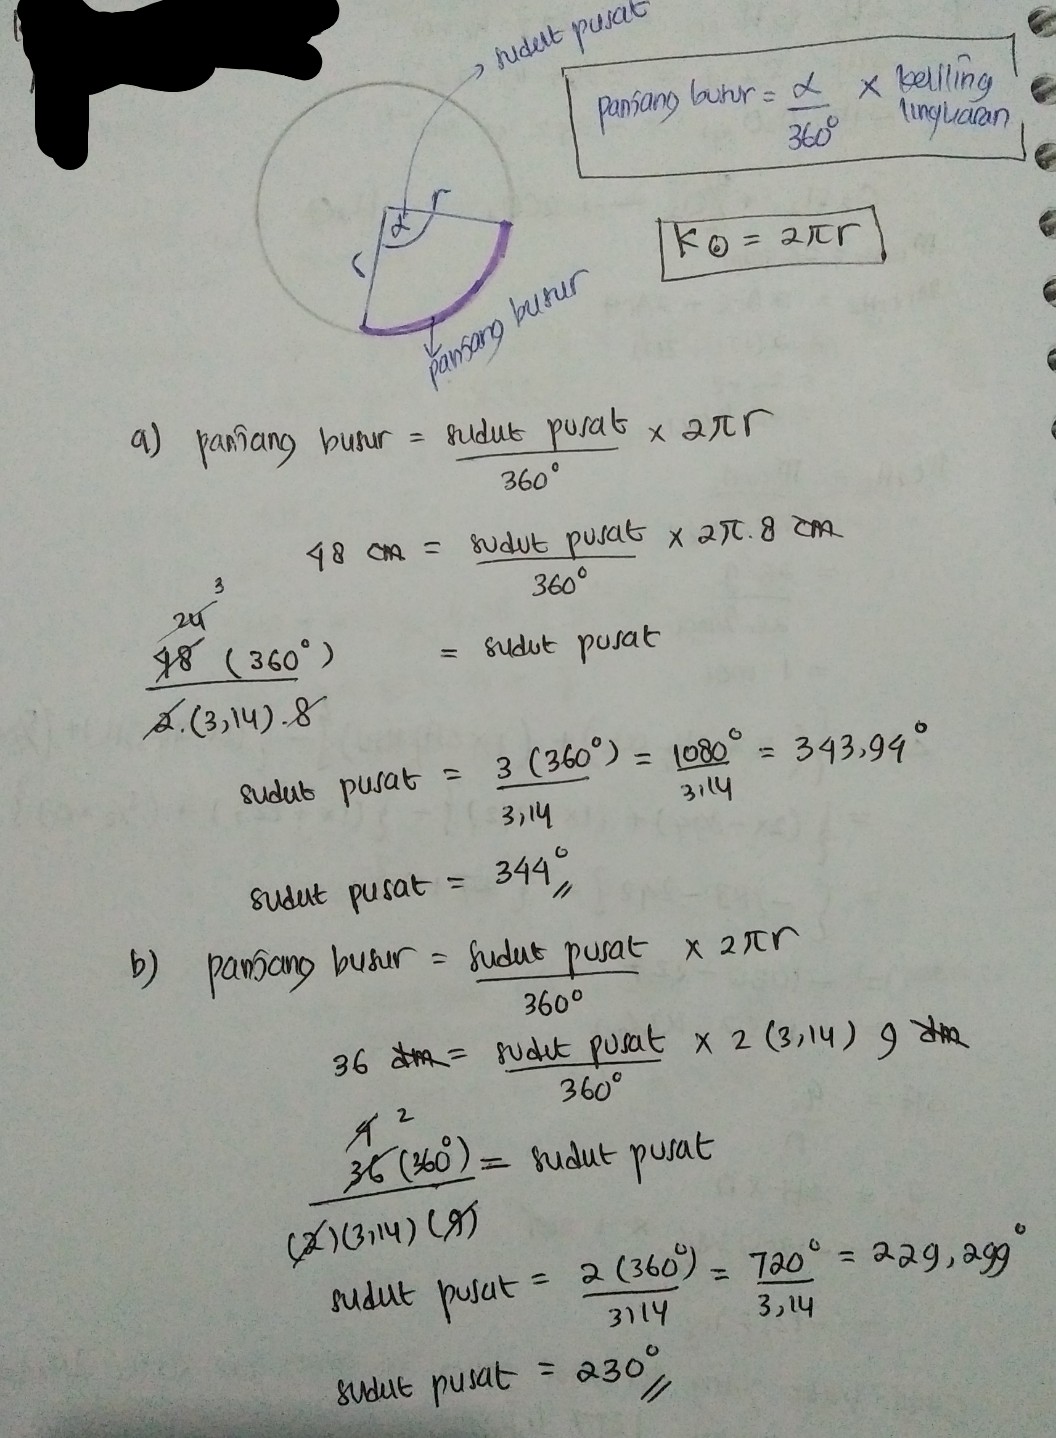 sudut pusat
panjang busur = α/360° × keliling lingkaran
r
α
r
K⊙ = 2πr
panjang busur
a) panjang busur = sudut pusat/360° × 2πr
48 cm = sudut pusat/360° × 2π.8 cm
24 3
48 (360°)/2.(3,14).8 = sudut pusat
sudut pusat = 3 (360°)/3,14 = 1080°/3,14 = 343,94°
sudut pusat = 344°//
b) panjang busur = sudut pusat/360° × 2πr
36 dm = sudut pusat/360° × 2 (3,14) 9 dm
4 2
36 (360°)/(2)(3,14)(9) = sudut pusat
sudut pusat = 2 (360°)/3,14 = 720°/3,14 = 229,299°
sudut pusat = 230°//